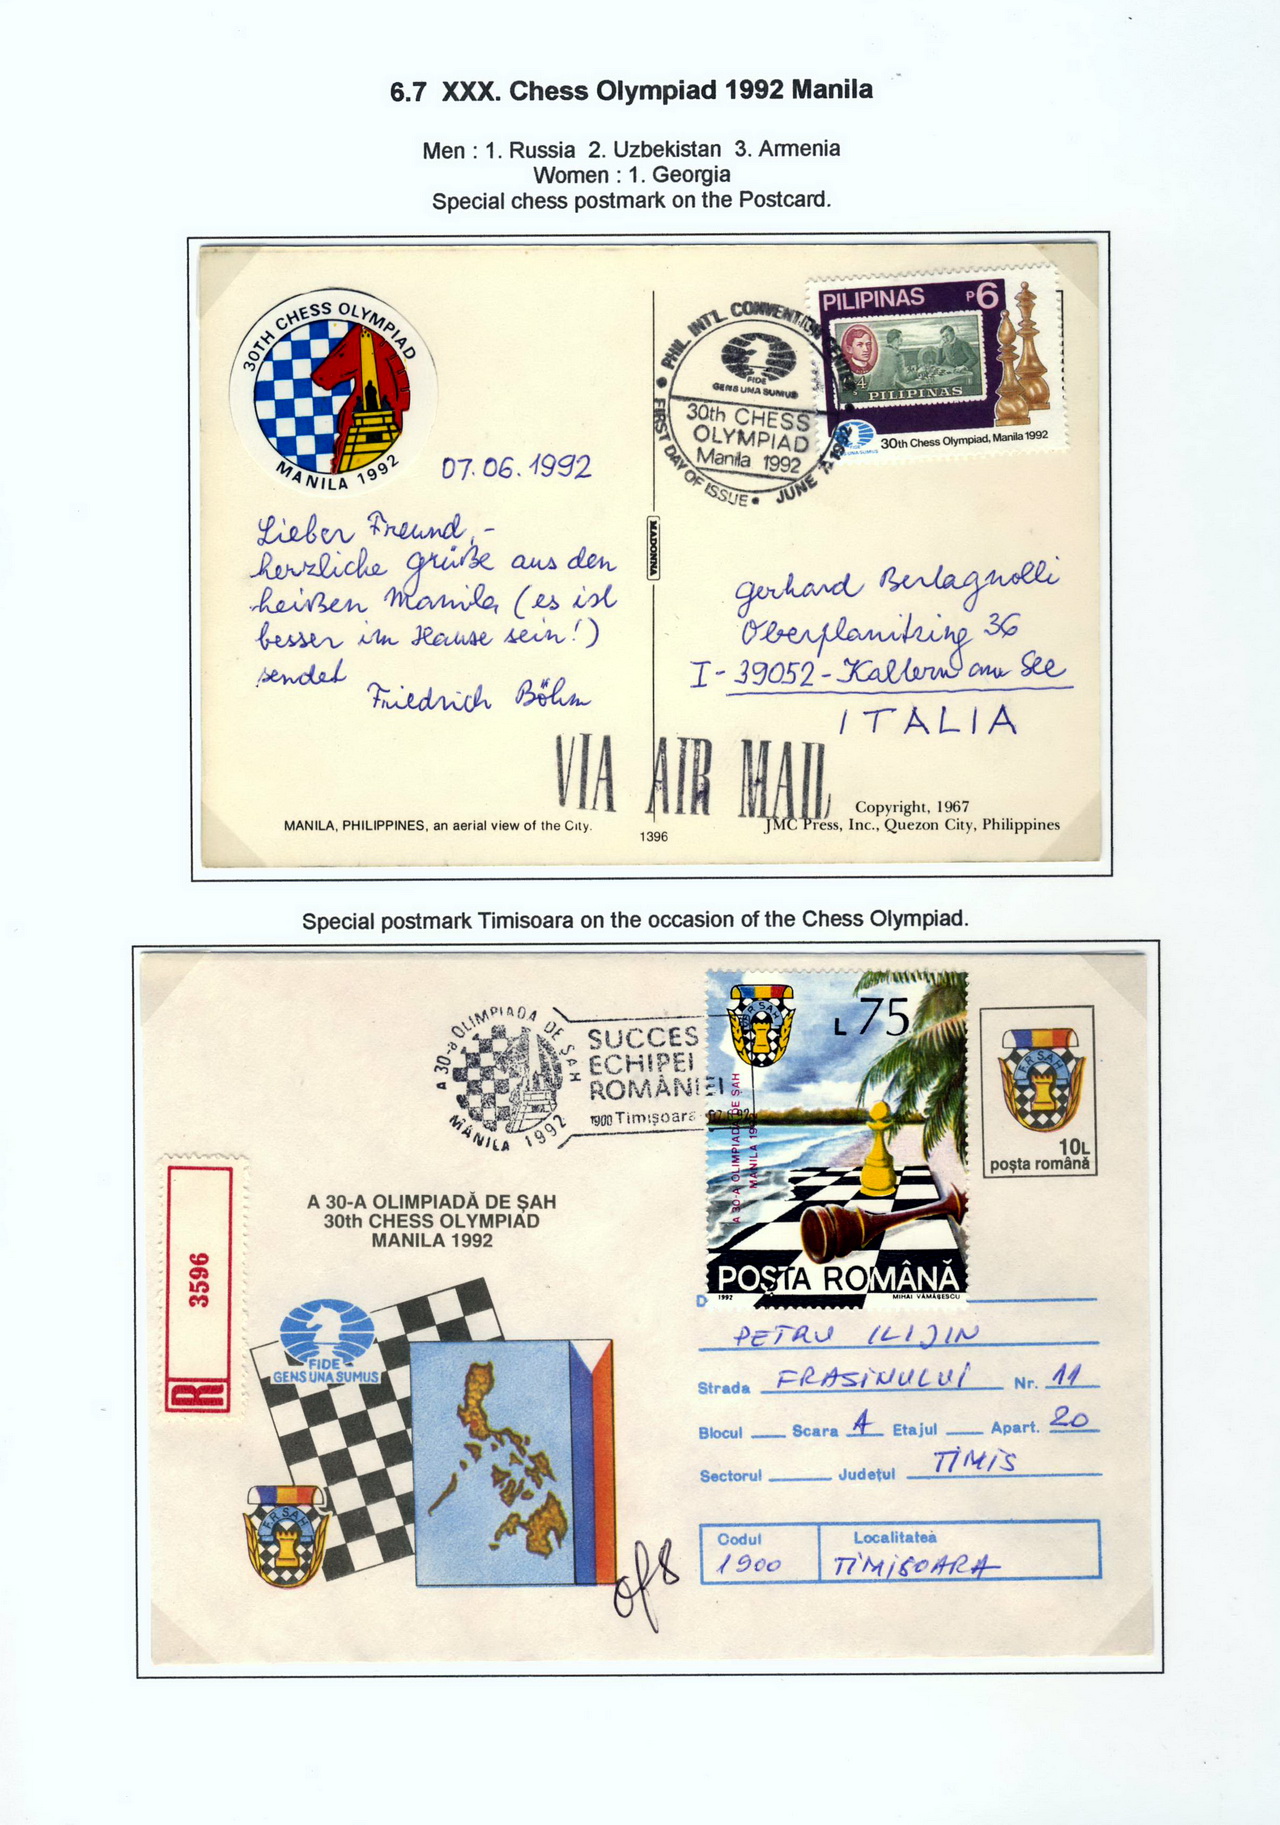 6.7 XXX. Chess Olympiad 1992 Manila
Men : 1. Russia 2. Uzbekistan 3. Armenia
Women : 1. Georgia
Special chess postmark on the Postcard.
30TH CHESS OLYMPIAD
MANILA 1992
07.06.1992
Lieber Freund,-
herzliche Grüße aus dem
heißen Manila (es ist
besser im Hause sein!)
sendet
Friedrich Böhm
MADONNA
PHIL. INT'L. CONVENTION CENTER
FIDE
GENS UNA SUMUS
30th CHESS
OLYMPIAD
Manila 1992
FIRST DAY OF ISSUE • JUNE 1992
PILIPINAS P6
4 PILIPINAS
30th Chess Olympiad, Manila 1992
Gerhard Bertagnolli
Oberplanitzing 36
I-39052-Kaltern am See
ITALIA
VIA AIR MAIL
MANILA, PHILIPPINES, an aerial view of the City.
1396
Copyright, 1967
JMC Press, Inc., Quezon City, Philippines
Special postmark Timisoara on the occasion of the Chess Olympiad.
A 30-a OLIMPIADA DE ŞAH
MANILA 1992
SUCCES
ECHIPEI
ROMÂNIEI
1900 Timişoara
F.R. ŞAH
L75
A 30-A OLIMPIADA DE ŞAH
MANILA 1992
POŞTA ROMÂNĂ
1992 MIHAI VĂMĂŞESCU
F.R. ŞAH
10L
poşta română
R 3596
A 30-A OLIMPIADĂ DE ŞAH
30th CHESS OLYMPIAD
MANILA 1992
FIDE
GENS UNA SUMUS
F.R. ŞAH
D
PETRU ILIJIN
Strada FRASINULUI Nr. 11
Blocul Scara A Etajul Apart. 20
Sectorul Judeţul TIMIS
Codul Localitatea
1900 TIMISOARA